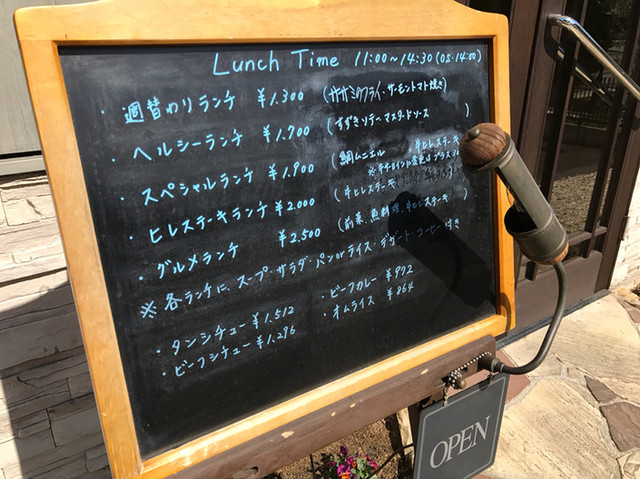 Lunch Time 11:00~14:30 (OS・14:00)
・週替わりランチ ¥1.300 (ササミのフライ、サーモントマト焼き)
・ヘルシーランチ ¥1.700 (すずきソテーマスタードソース)
・スペシャルランチ ¥1.900 (鯛ムニエル 牛ヒレステーキ
・ヒレステーキランチ ¥2.000 (牛ヒレステーキ
・グルメランチ ¥2.500 (前菜、魚料理、牛ヒレステーキ
※各ランチに、スープ・サラダ・パンorライス・デザート・コーヒー付き
・タンシチュー ¥1.512 ・ビーフカレー ¥972
・ビーフシチュー ¥1.296 ・オムライス ¥864
OPEN